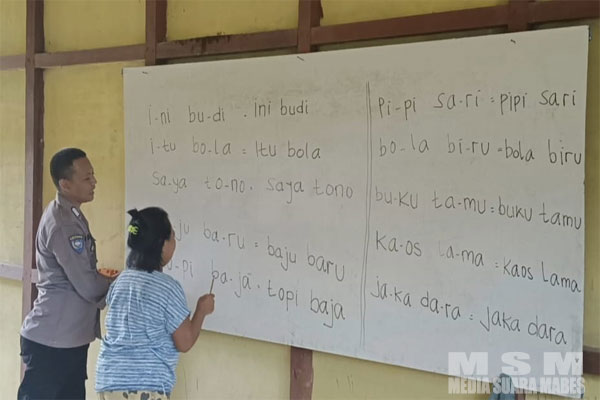 i-ni bu-di . ini budi
i-tu bo-la = Itu bola
sa-ya to-no . saya tono
ju ba-ru = baju baru
-pi ba-ja = topi baja
Pi-pi sa-ri = pipi sari
bo-la bi-ru = bola biru
bu-ku ta-mu = buku tamu
ka-os la-ma = kaos lama
ja-ka da-ra = jaka dara
MSM
MEDIA SUARA MABES